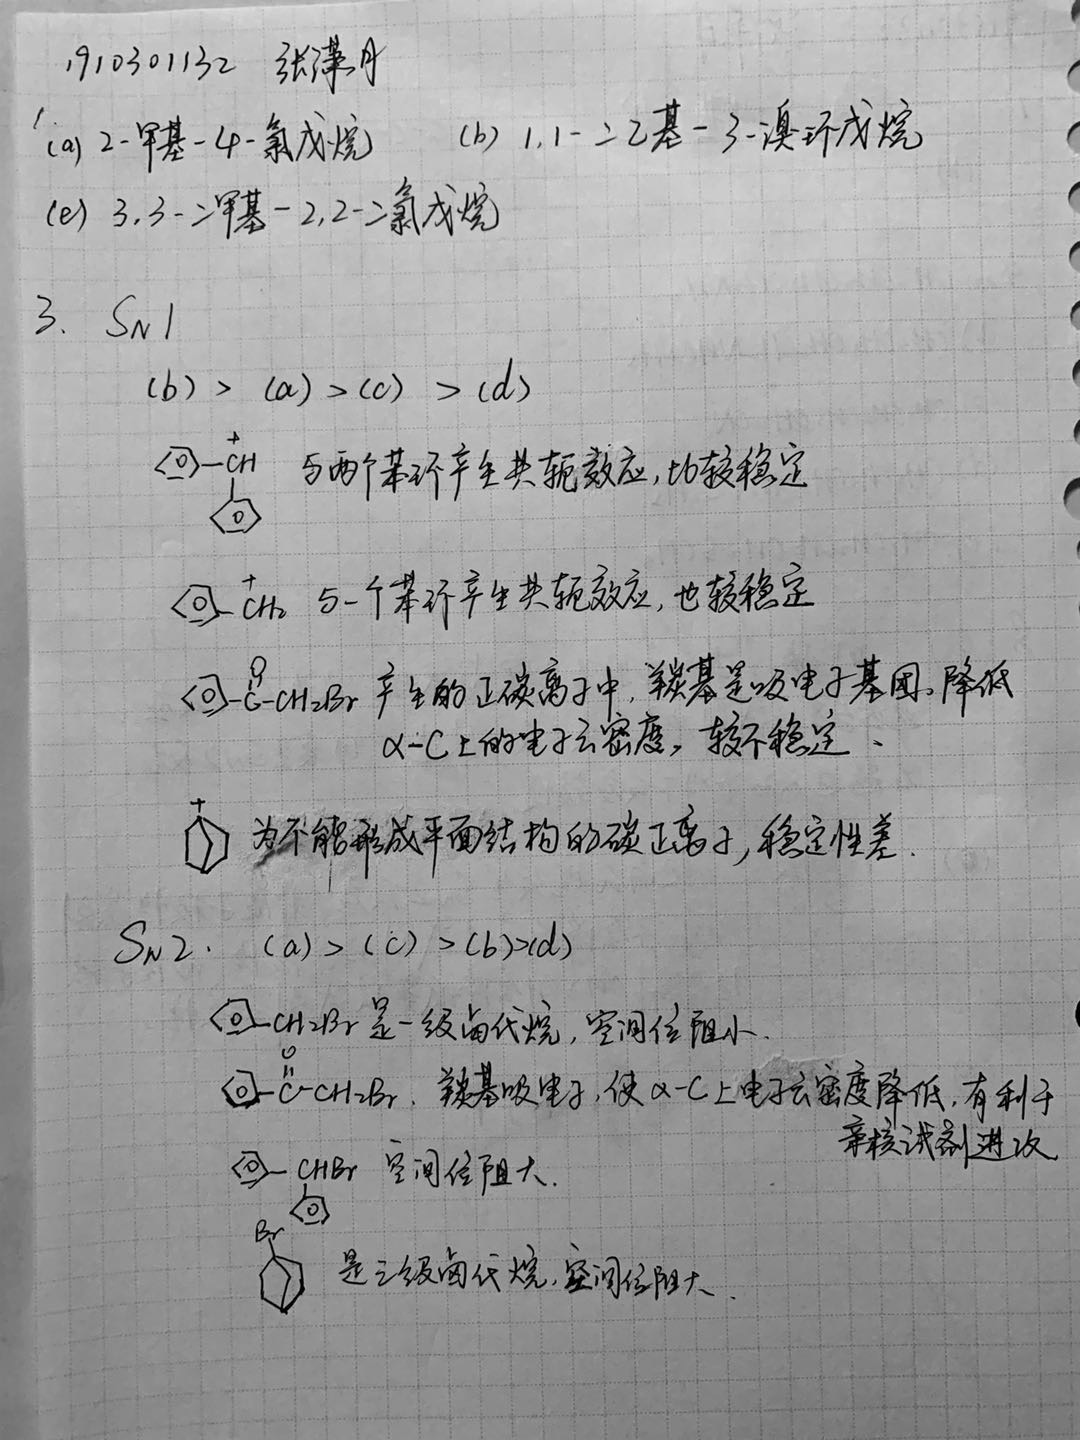 1910301132 张潆月
1.
(a) 2-甲基-4-氯戊烷 (b) 1,1-二乙基-3-溴环戊烷
(e) 3,3-二甲基-2,2-二氯戊烷
3. SN1
(b) > (a) > (c) > (d)
+
CH 与两个苯环产生共轭效应,比较稳定
+
CH2 与一个苯环产生共轭效应,也较稳定
O
C-CH2Br 产生的正碳离子中,羰基是吸电子基团。降低
α-C上的电子云密度,较不稳定、
+
为不能形成平面结构的碳正离子,稳定性差.
SN2. (a) > (c) > (b) > (d)
CH2Br 是一级卤代烷,空间位阻小.
O
C-CH2Br. 羰基吸电子,使α-C上电子云密度降低,有利于
亲核试剂进攻
CHBr 空间位阻大.
Br
是三级卤代烷,空间位阻大.